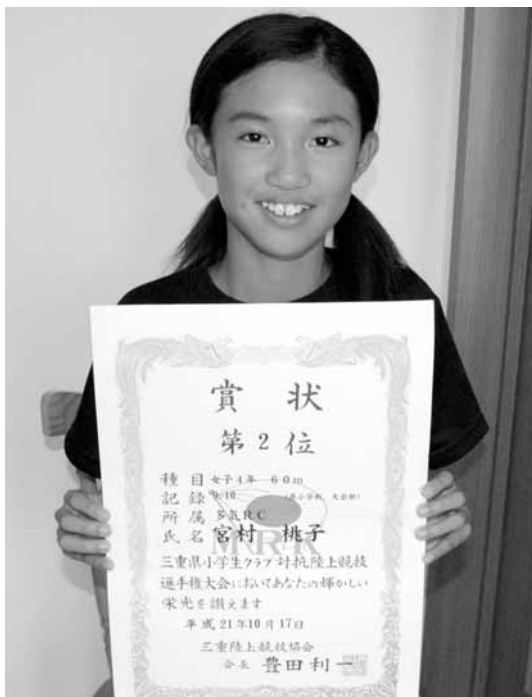 賞状
第2位
種目 女子4年 60m
記録 9:10
所属 SNRC
氏名 宮村 桃子
三重県小学生クラブ対抗陸上競技
選手権大会においてあなたの輝かしい
栄光を讃えます
平成21年10月17日
三重陸上競技協会
会長 豊田利一